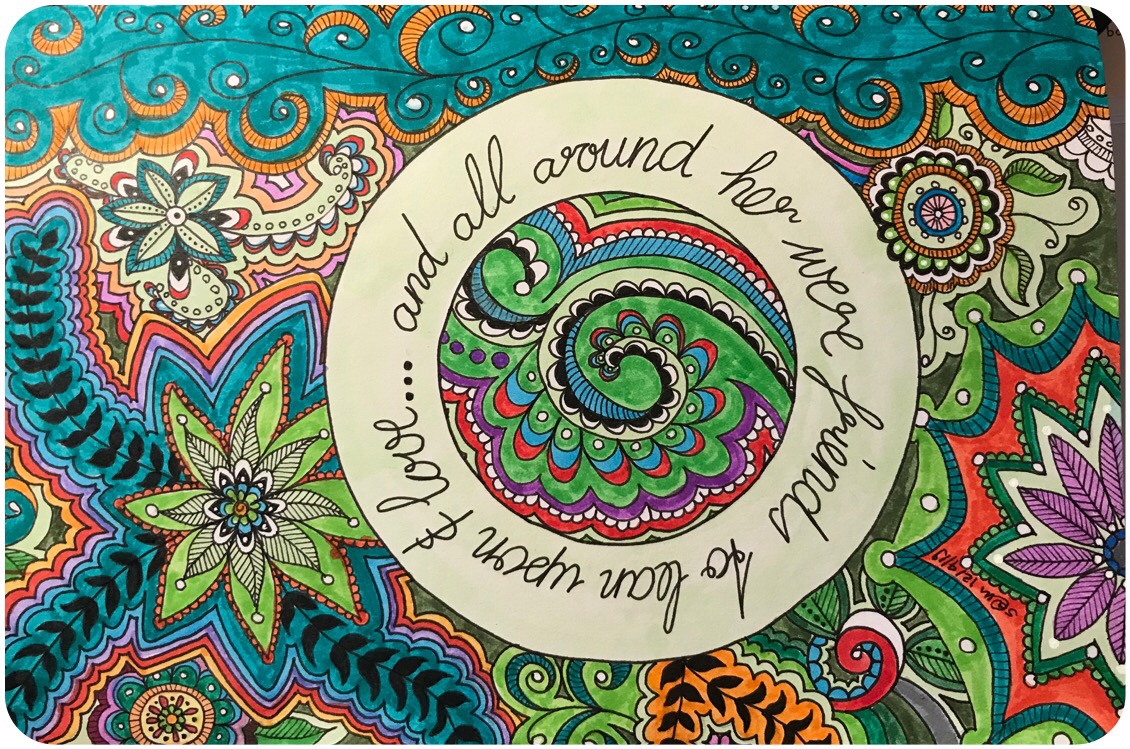 and all around her were friends to lean upon & love...